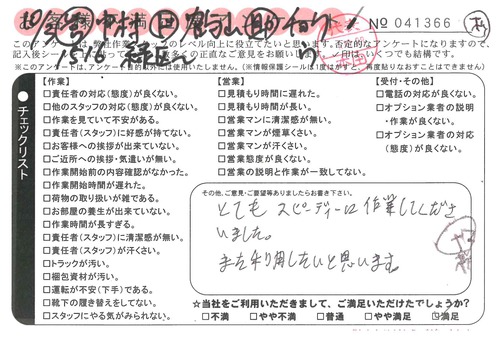 No 041366
このアンケートは、弊社作業スタッフのレベル向上に役立てたいと思います。否定的なアンケートになりますので、
※このアンケートは、アンケート目的以外には使用いたしません。(※情報保護シールは1度はがすと、再度貼りなおすことはできません)
チェックリスト
【作業】
□責任者の対応(態度)が良くない。
□他のスタッフの対応(態度)が良くない。
□作業を見ていて不安がある。
□責任者(スタッフ)に好感が持てない。
□お客様への挨拶が出来ていない。
□ご近所への挨拶・気遣いが無い。
□作業開始前の内容確認がなかった。
□作業開始時間が遅れた。
□荷物の取り扱いが雑である。
□お部屋の養生が出来ていない。
□作業時間が長すぎる。
□責任者(スタッフ)に清潔感が無い。
□責任者(スタッフ)が汗くさい。
□トラックが汚い。
□梱包資材が汚い。
□運転が不安(下手)である。
□靴下の履き替えをしてない。
□スタッフにやる気がみられない。
【営業】
□見積もり時間に遅れた。
□見積もり時間が長い。
□営業マンに清潔感が無い。
□営業マンが煙草くさい。
□営業マンが汗くさい。
□営業態度が良くない。
□営業の説明と作業が一致してない。
【受付・その他】
□電話の対応が良くない。
□オプション業者の説明
・作業が良くない。
□オプション業者の対応
(態度)が良くない。
その他、ご意見・ご要望等ありましたらお書き下さい。
とても スピーディーに 作業してくださ
いました。
また利用したいと思います。
☆当社をご利用いただきまして、ご満足いただけたでしょうか?
□不満 □やや不満 □普通 □やや満足 ☑満足